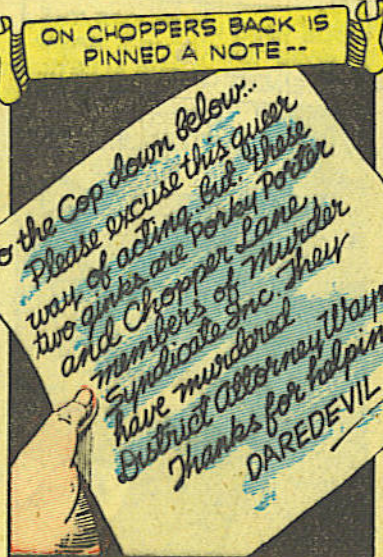 ON CHOPPERS BACK IS
PINNED A NOTE--
o the Cop down below...
Please excuse this queer
way of acting, but. these
two ginks are Porky Porter
and Chopper Lane
members of Murder
Syndicate Inc. They
have murdered
District Attorney Way
Thanks for helpin
DAREDEVIL